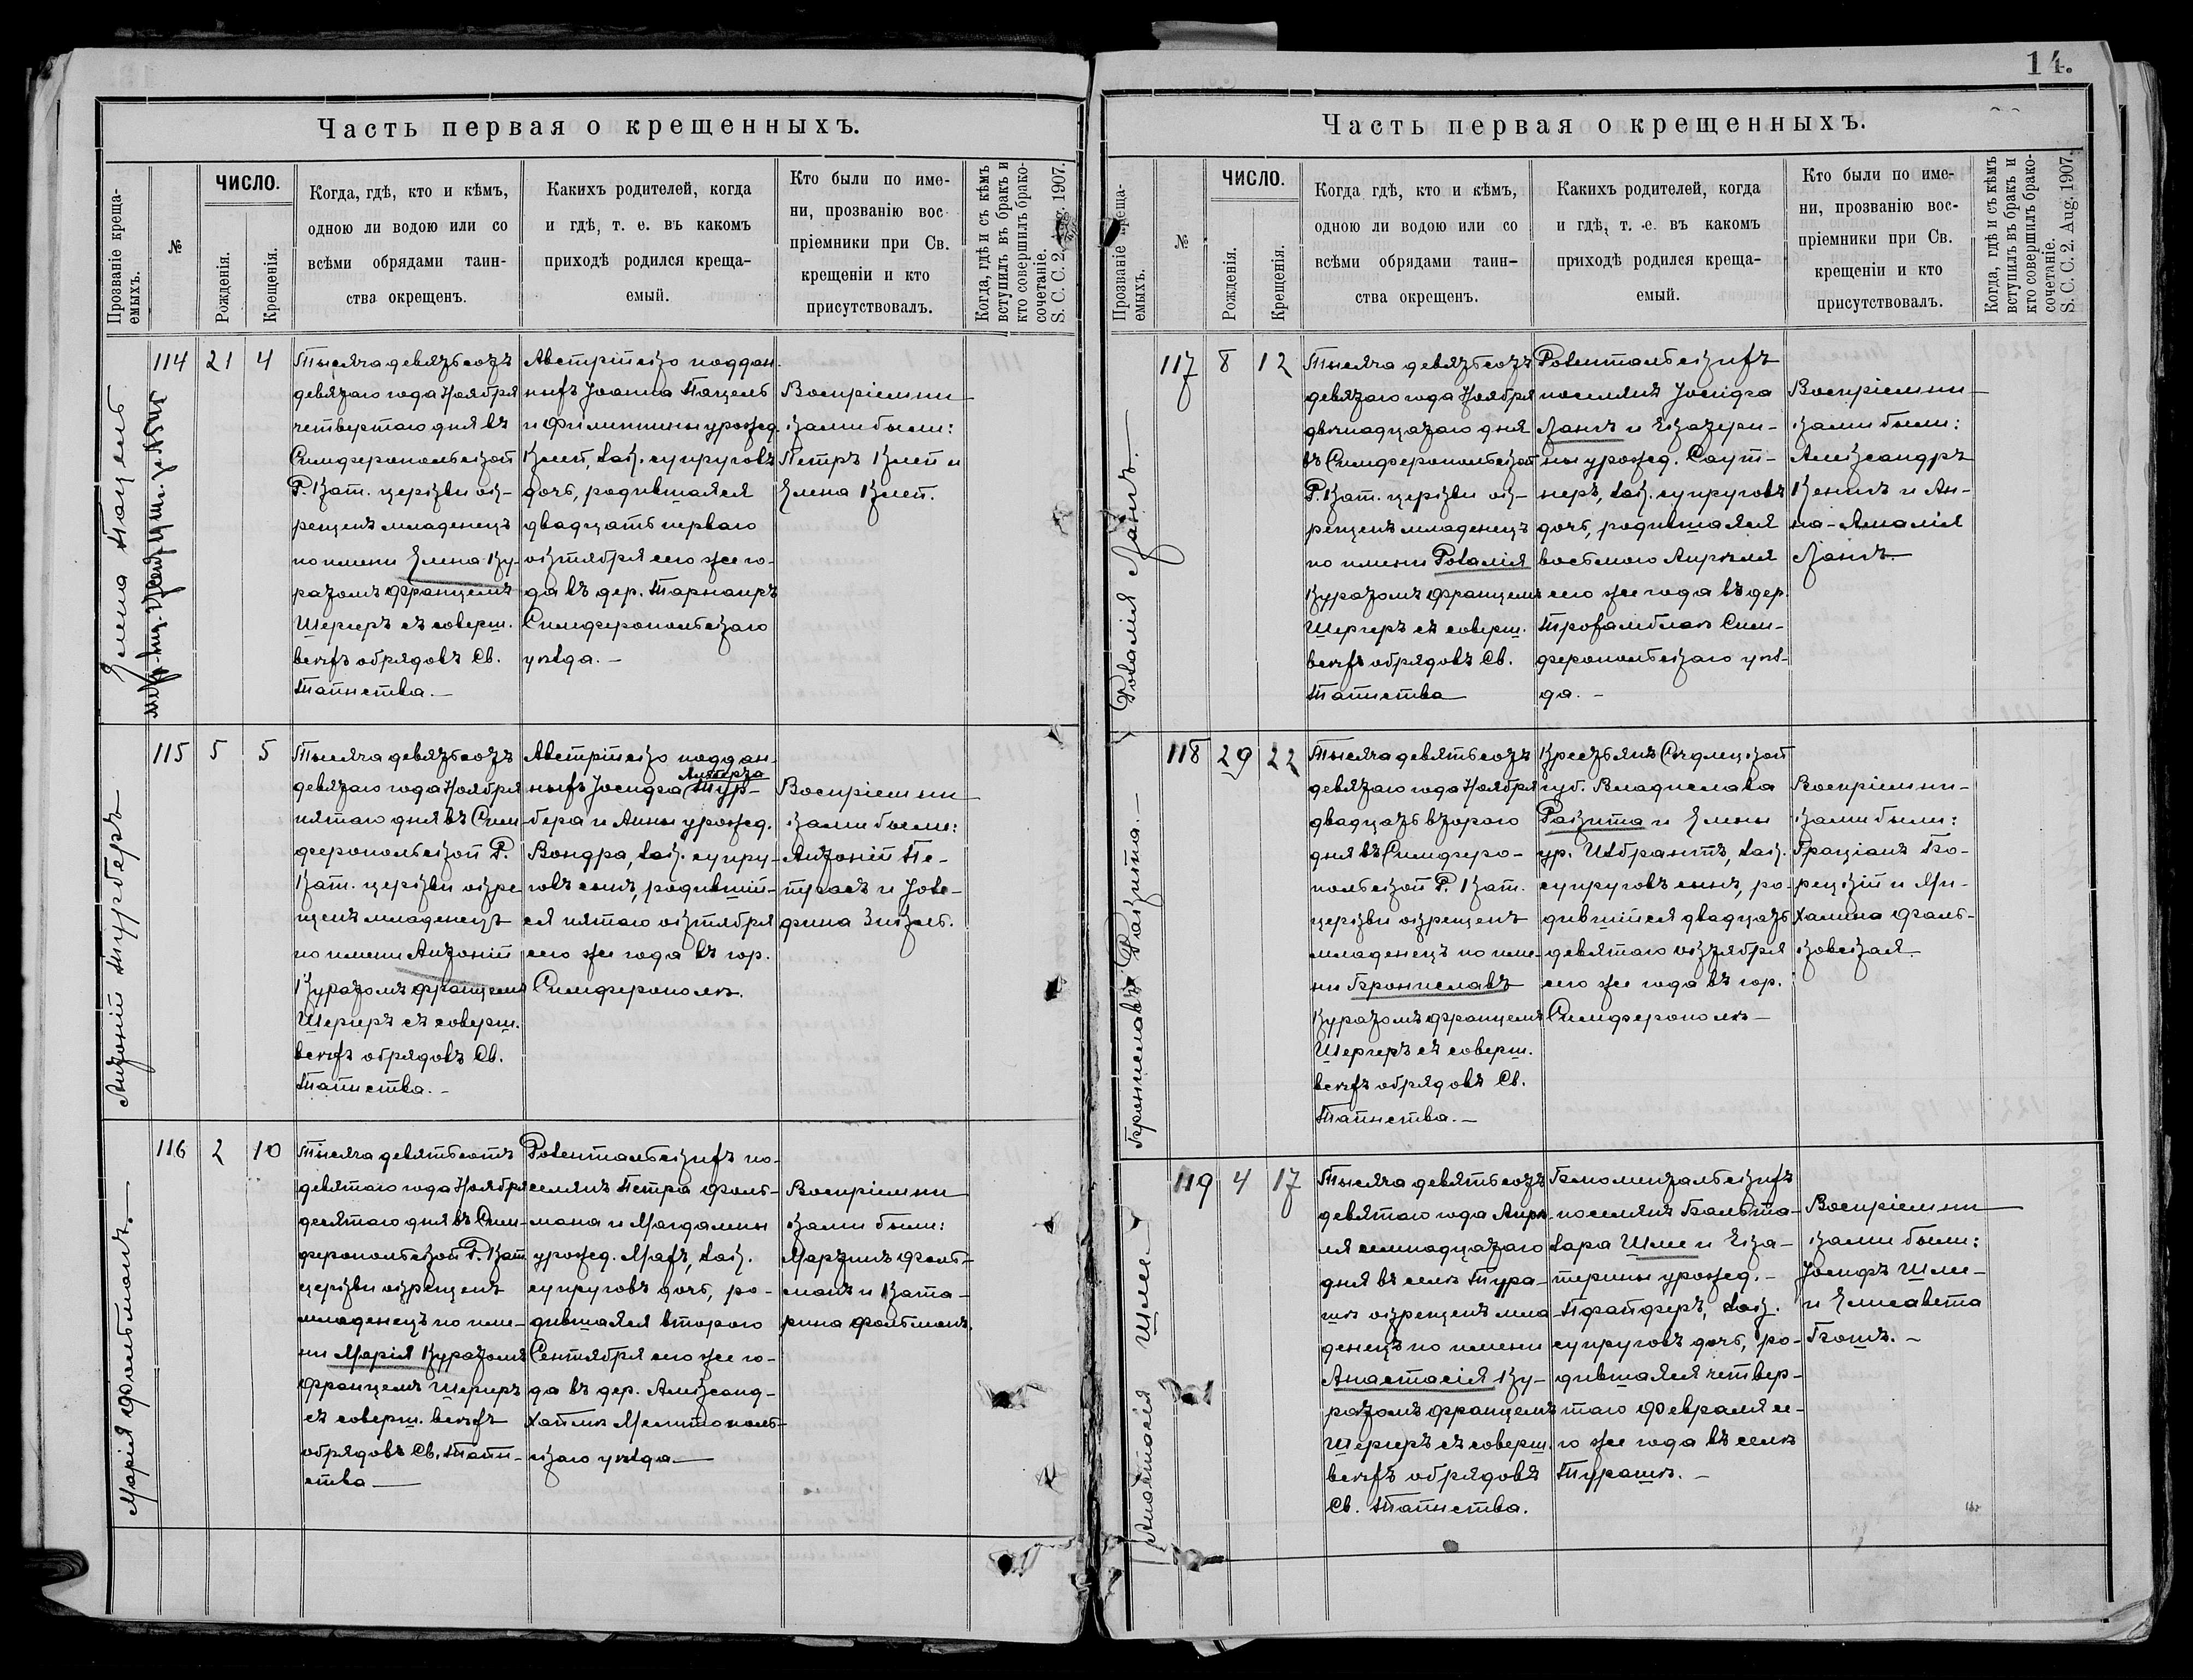 14.
Часть первая о крещенныхъ.
Прозваніе креща-
емыхъ.
№
ЧИСЛО.
Рожденія.
Крещенія.
Когда, гдѣ, кто и кѣмъ,
одною ли водою или со
всѣми обрядами таин-
ства окрещенъ.
Какихъ родителей, когда
и гдѣ, т. е. въ какомъ
приходѣ родился креща-
емый.
Кто были по име-
ни, прозванію вос
пріемники при Св.
крещеніи и кто
присутствовалъ.
Когда, гдѣ и съ кѣмъ
вступилъ въ бракъ и
кто совершилъ брако-
сочетаніе.
S. C. C. 2. Aug. 1907.
Елена Пацель
114
21
4
Тысяча девятьсотъ
девятаго года Ноября
четвертаго дня въ
Симферопольской
Р. Кат. церкви ок-
рещенъ младенецъ
по имени Елена Ку-
ратомъ Францемъ
Шергеръ съ соверш.
всѣхъ обрядовъ Св.
Таинства. —
Австрійско поддан-
ныхъ Іоанна Пацель
и Филиппины урожд.
Клей, зак. супруговъ
дочь, родившаяся
двадцать перваго
октября сего же го-
да въ дер. Тарнаиръ
Симферопольскаго
уѣзда. —
Воспріемни
ками были:
Петръ Клей и
Елена Клей.
Антоній Турберъ
115
5
5
Тысяча девятьсотъ
девятаго года Ноября
пятаго дня въ Сим-
феропольской Р.
Кат. церкви окре
щенъ младенецъ
по имени Антоній
Куратомъ Францемъ
Шергеръ съ соверш.
всѣхъ обрядовъ Св.
Таинства. —
Австрійско поддан-
ныхъ Іосифа Тур-
бера и Анны урожд.
Вондра, зак. супру-
говъ сынъ, родившій-
ся пятаго октября
сего же года въ гор.
Симферополѣ.
Воспріемни
ками были:
Антоній Пе-
трасъ и Іозе-
фина Зикель.
Марія Фольтманъ.
116
2
10
Тысяча девятьсотъ
девятаго года Ноября
десятаго дня въ Сим-
феропольской Р. Кат
церкви окрещенъ
младенецъ по име-
ни Марія Куратомъ
Францемъ Шергеръ
съ соверш. всѣхъ
обрядовъ Св. Таин-
ства —
Розентальскихъ по-
селянъ Петра Фоль-
мана и Магдалины
урожд. Махъ, зак.
супруговъ дочь, ро-
дившаяся второго
Сентября сего же го-
да въ дер. Александ-
хаймѣ Мелитополь-
скаго уѣзда —
Воспріемни
ками были:
Мартинъ Фольт-
манъ и Ката-
рина Фольтманъ.
Часть первая о крещенныхъ.
Прозваніе креща-
емыхъ.
№
ЧИСЛО.
Рожденія.
Крещенія.
Когда гдѣ, кто и кѣмъ,
одною ли водою или со
всѣми обрядами таин-
ства окрещенъ.
Какихъ родителей, когда
и гдѣ, т. е. въ какомъ
приходѣ родился креща-
емый.
Кто были по име-
ни, прозванію вос-
пріемники при Св.
крещеніи и кто
присутствовалъ.
Когда, гдѣ и съ кѣмъ
вступилъ въ бракъ и
кто совершилъ брако-
сочетаніе.
S. C. C. 2. Aug. 1907.
Розалія Лангъ. —
117
8
12
Тысяча девятьсотъ
девятаго года Ноября
двѣнадцатаго дня
въ Симферопольской
Р. Кат. церкви ок-
рещенъ младенецъ
по имени Розалія
Куратомъ Францемъ
Шергеръ съ соверш.
всѣхъ обрядовъ Св.
Таинства
Розентальскихъ
поселянъ Іосифа
Лангъ и Екатери-
ны урожд. Саут-
неръ, зак. супруговъ
дочь, родившаяся
восьмого Апрѣля
сего же года въ дер.
Симферопольскаго уѣз-
да. —
Воспріемни-
ками были:
Александръ
Кенигъ и Ан-
на-Амалія
Лангъ
Брониславъ Ракита. —
118
29
22
Тысяча девятьсотъ
девятаго года Ноября
двадцать второго
дня въ Симферо-
польской Р. Кат.
церкви окрещенъ
младенецъ по име-
ни Брониславъ
Куратомъ Францемъ
Шергеръ съ соверш.
всѣхъ обрядовъ Св.
Таинства. —
Крестьянъ Сѣдлецкой
губ. Владислава
Ракита и Елены
ур. Избрантъ, зак.
супруговъ сынъ, ро-
дившійся двадцать
девятаго октября
сего же года въ гор.
Симферополѣ —
Воспріемни-
ками были:
Граціанъ Бо-
рецкій и Ми-
халина Фаль-
ковская.
Анастасія Шлее
119
4
17
Тысяча девятьсотъ
девятаго года Апрѣ-
ля семнадцатаго
дня въ селѣ Тура-
шѣ окрещенъ мла-
денецъ по имени
Анастасія Ку-
ратомъ Францемъ
Шергеръ съ соверш.
всѣхъ обрядовъ
Св. Таинства.
Блюментальскихъ
поселянъ Бальта-
зара Шлее и Ека-
терины урожд. —
Пфайферъ, зак.
супруговъ дочь, ро-
дившаяся четвер-
таго Февраля се-
го же года въ селѣ
Турашѣ. —
Воспріемни
ками были:
Іосифъ Шлее
и Елисавета
Бошъ. —